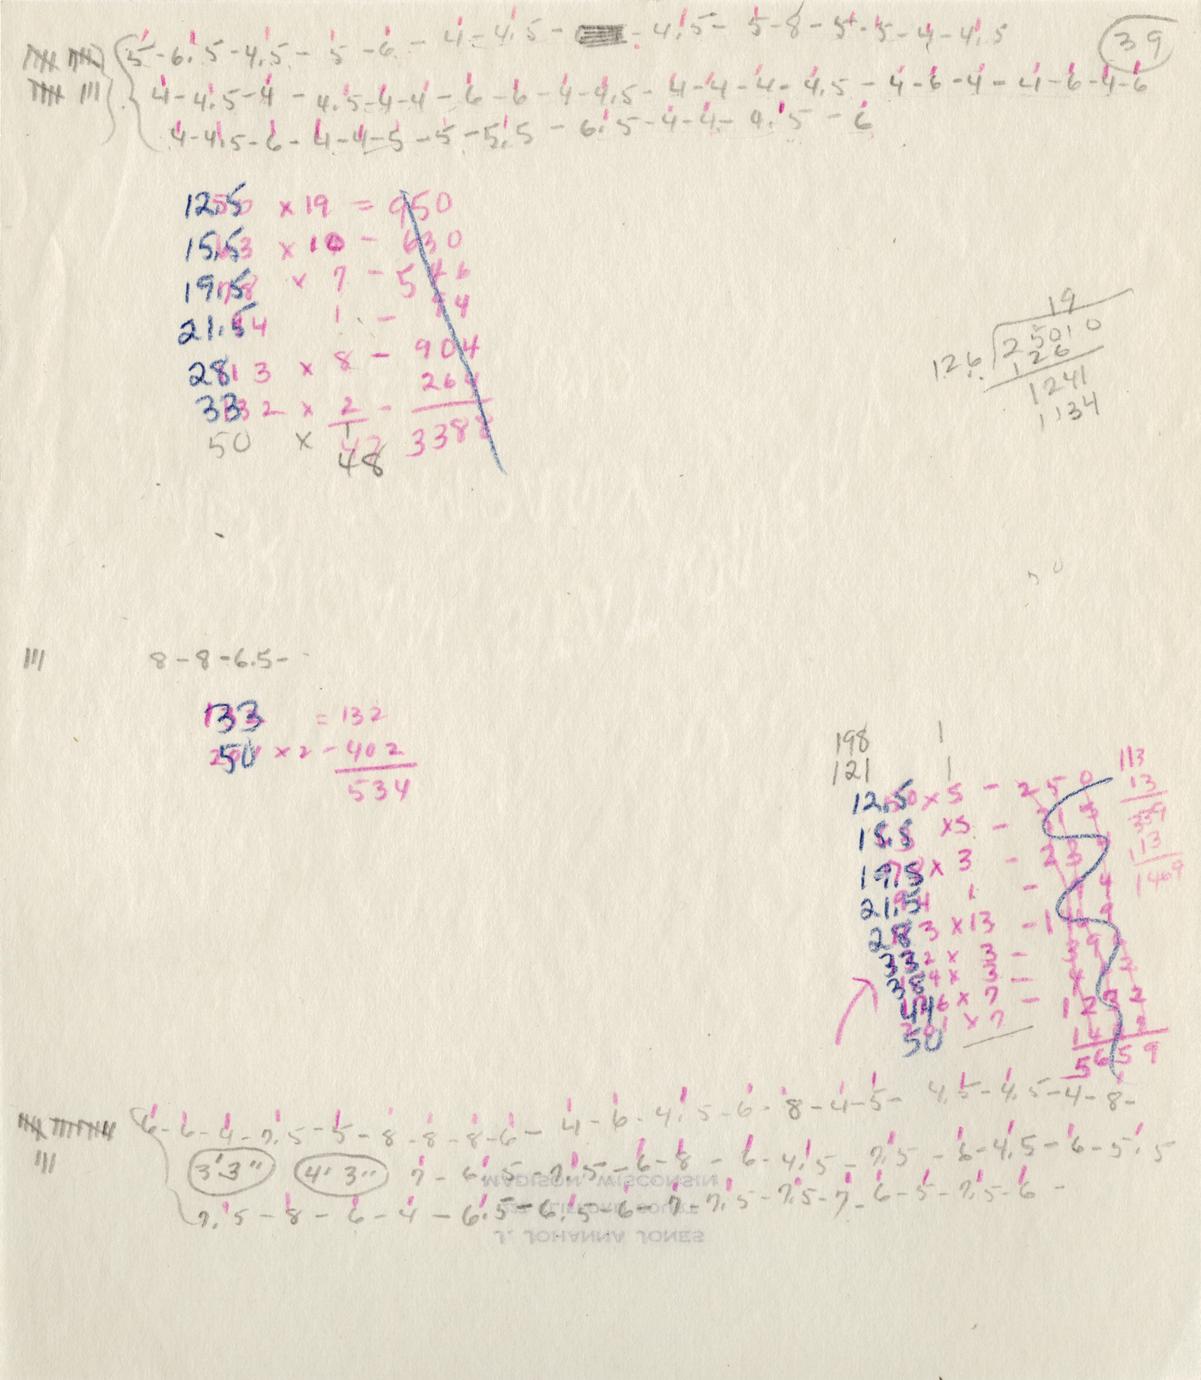 39
5 - 6.5 - 4.5 - 5 - 6 - 4 - 4.5 - - 4.5 - 5 - 8 - 5 - 5 - 4 - 4.5
4 - 4.5 - 4 - 4.5 - 4 - 4 - 6 - 6 - 4 - 4.5 - 4 - 4 - 4 - 4.5 - 4 - 6 - 4 - 4 - 6 - 4 - 6
4 - 4.5 - 6 - 4 - 4 - 5 - 5 - 5.5 - 6.5 - 4 - 4 - 4.5 - 6
12.5 × 19 = 950
15.5 × 10 - 630
19.5 × 7 - 546
21.5 1 -
28 × 8 - 904
33 × 2 - 264
50 × 1 3388
48
19
126 25010
126
1241
1134
8 - 8 - 6.5 -
33 = 132
50 × 2 - 402
534
198 1
121 1
12.5 × 5 - 250
15.5 × 5 -
19.5 × 3 - 234
21.5 1 -
28 × 13 -
33 × 3 -
38 × 3 -
44 × 7 - 1232
50 × 7
5659
113
13
339
113
1469
6 - 6 - 4 - 7.5 - 5 - 8 - 8 - 8 - 6 - 4 - 6 - 4.5 - 6 - 8 - 4 - 5 - 4.5 - 4.5 - 4 - 8 -
3'3" 4'3" 7 - 6.5 - 7.5 - 6 - 8 - 6 - 4.5 - 7.5 - 6 - 4.5 - 6 - 5.5
7.5 - 8 - 6 - 4 - 6.5 - 6.5 - 6 - 7 - 7.5 - 7.5 - 7 - 6 - 5 - 7.5 - 6 -
MADISON, WISCONSIN
J. JOHANNA JONES